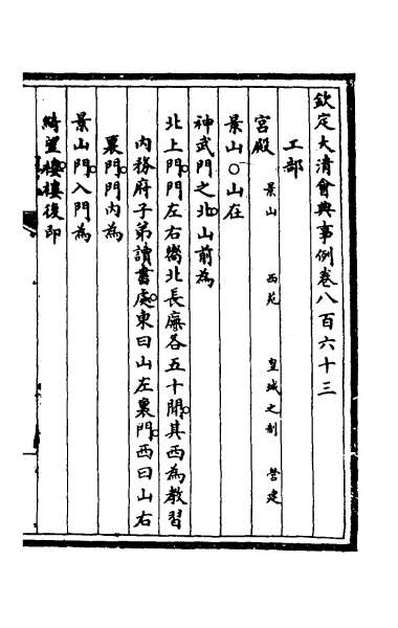 欽定大清會典事例卷八百六十三
工部
宮殿 景山 西苑 皇城之制 營建
景山○山在
神武門之北。山前為
北上門。門左右嚮北長廡各五十間。其西為教習
內務府子弟讀書處。東曰山左裏門。西曰山右
裏門。門內為
景山門。入門為
綺望樓。樓後即